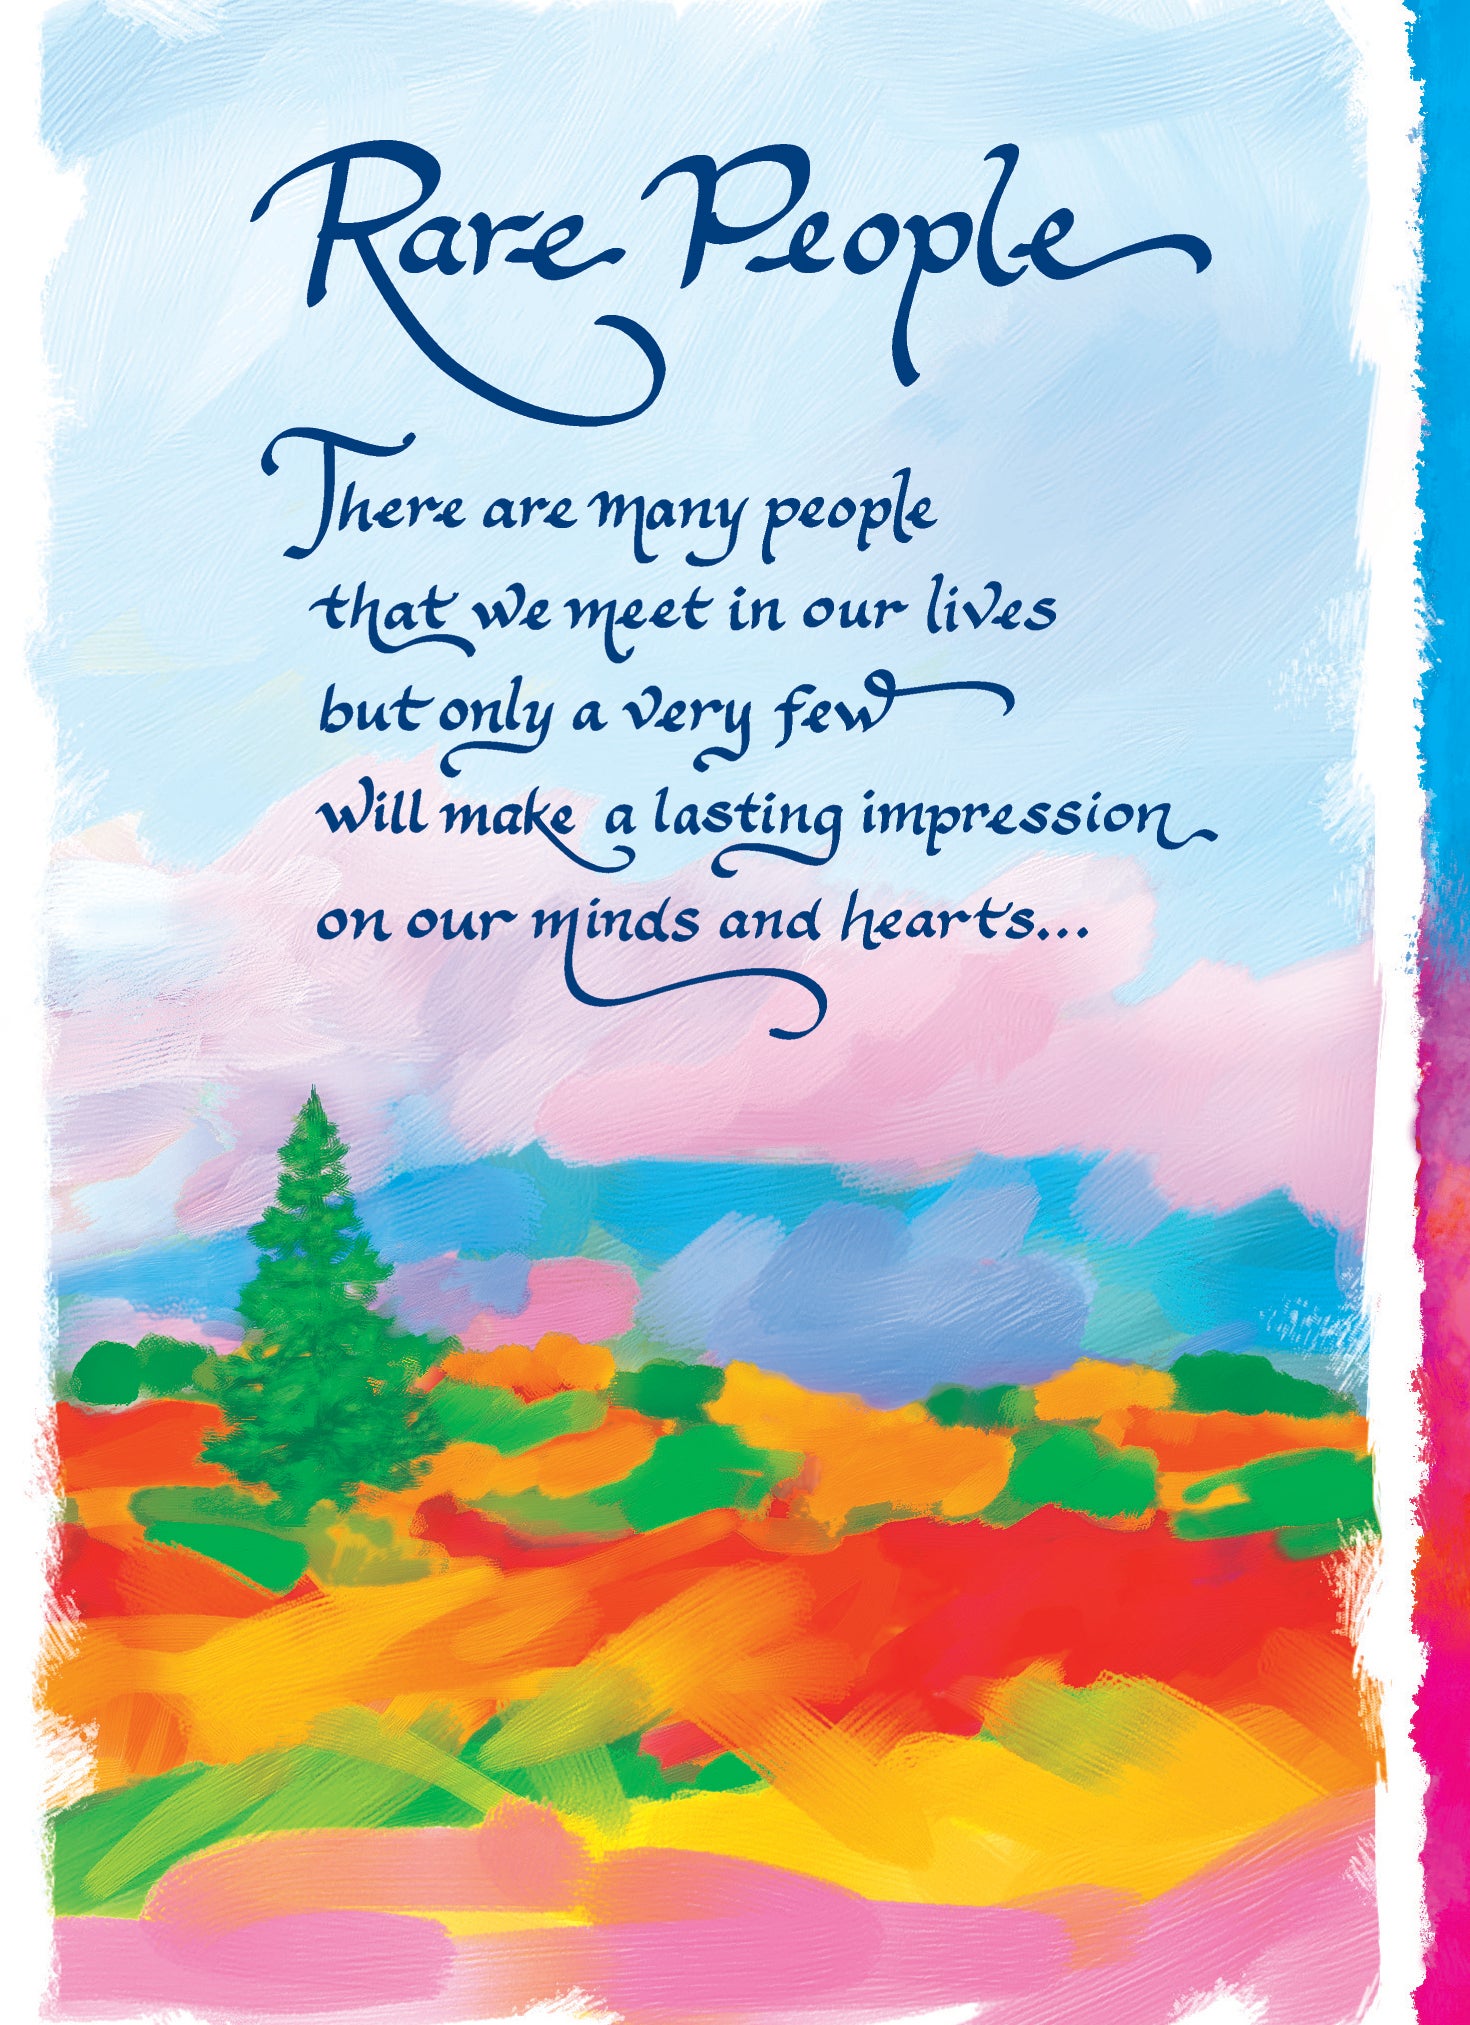 Rare People
There are many people
that we meet in our lives
but only a very few
will make a lasting impression
on our minds and hearts...